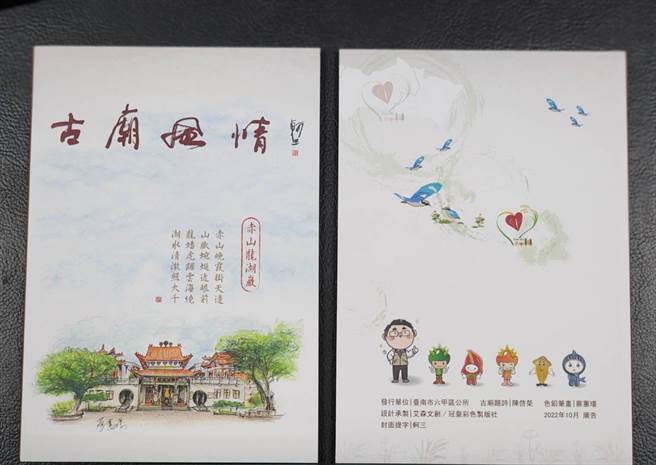 古廟風情
赤山龍湖巖
赤山晚霞掛天邊
山巖蜿蜒近眼前
龍蟠虎踞雲海繞
湖水清澈照大千
發行單位|臺南市六甲區公所 古廟題詩|陳啓榮 色鉛筆畫|蔡憲璋
設計承製|艾森文創 / 冠皇彩色製版社 2022年10月 廣告
封面提字|軻三